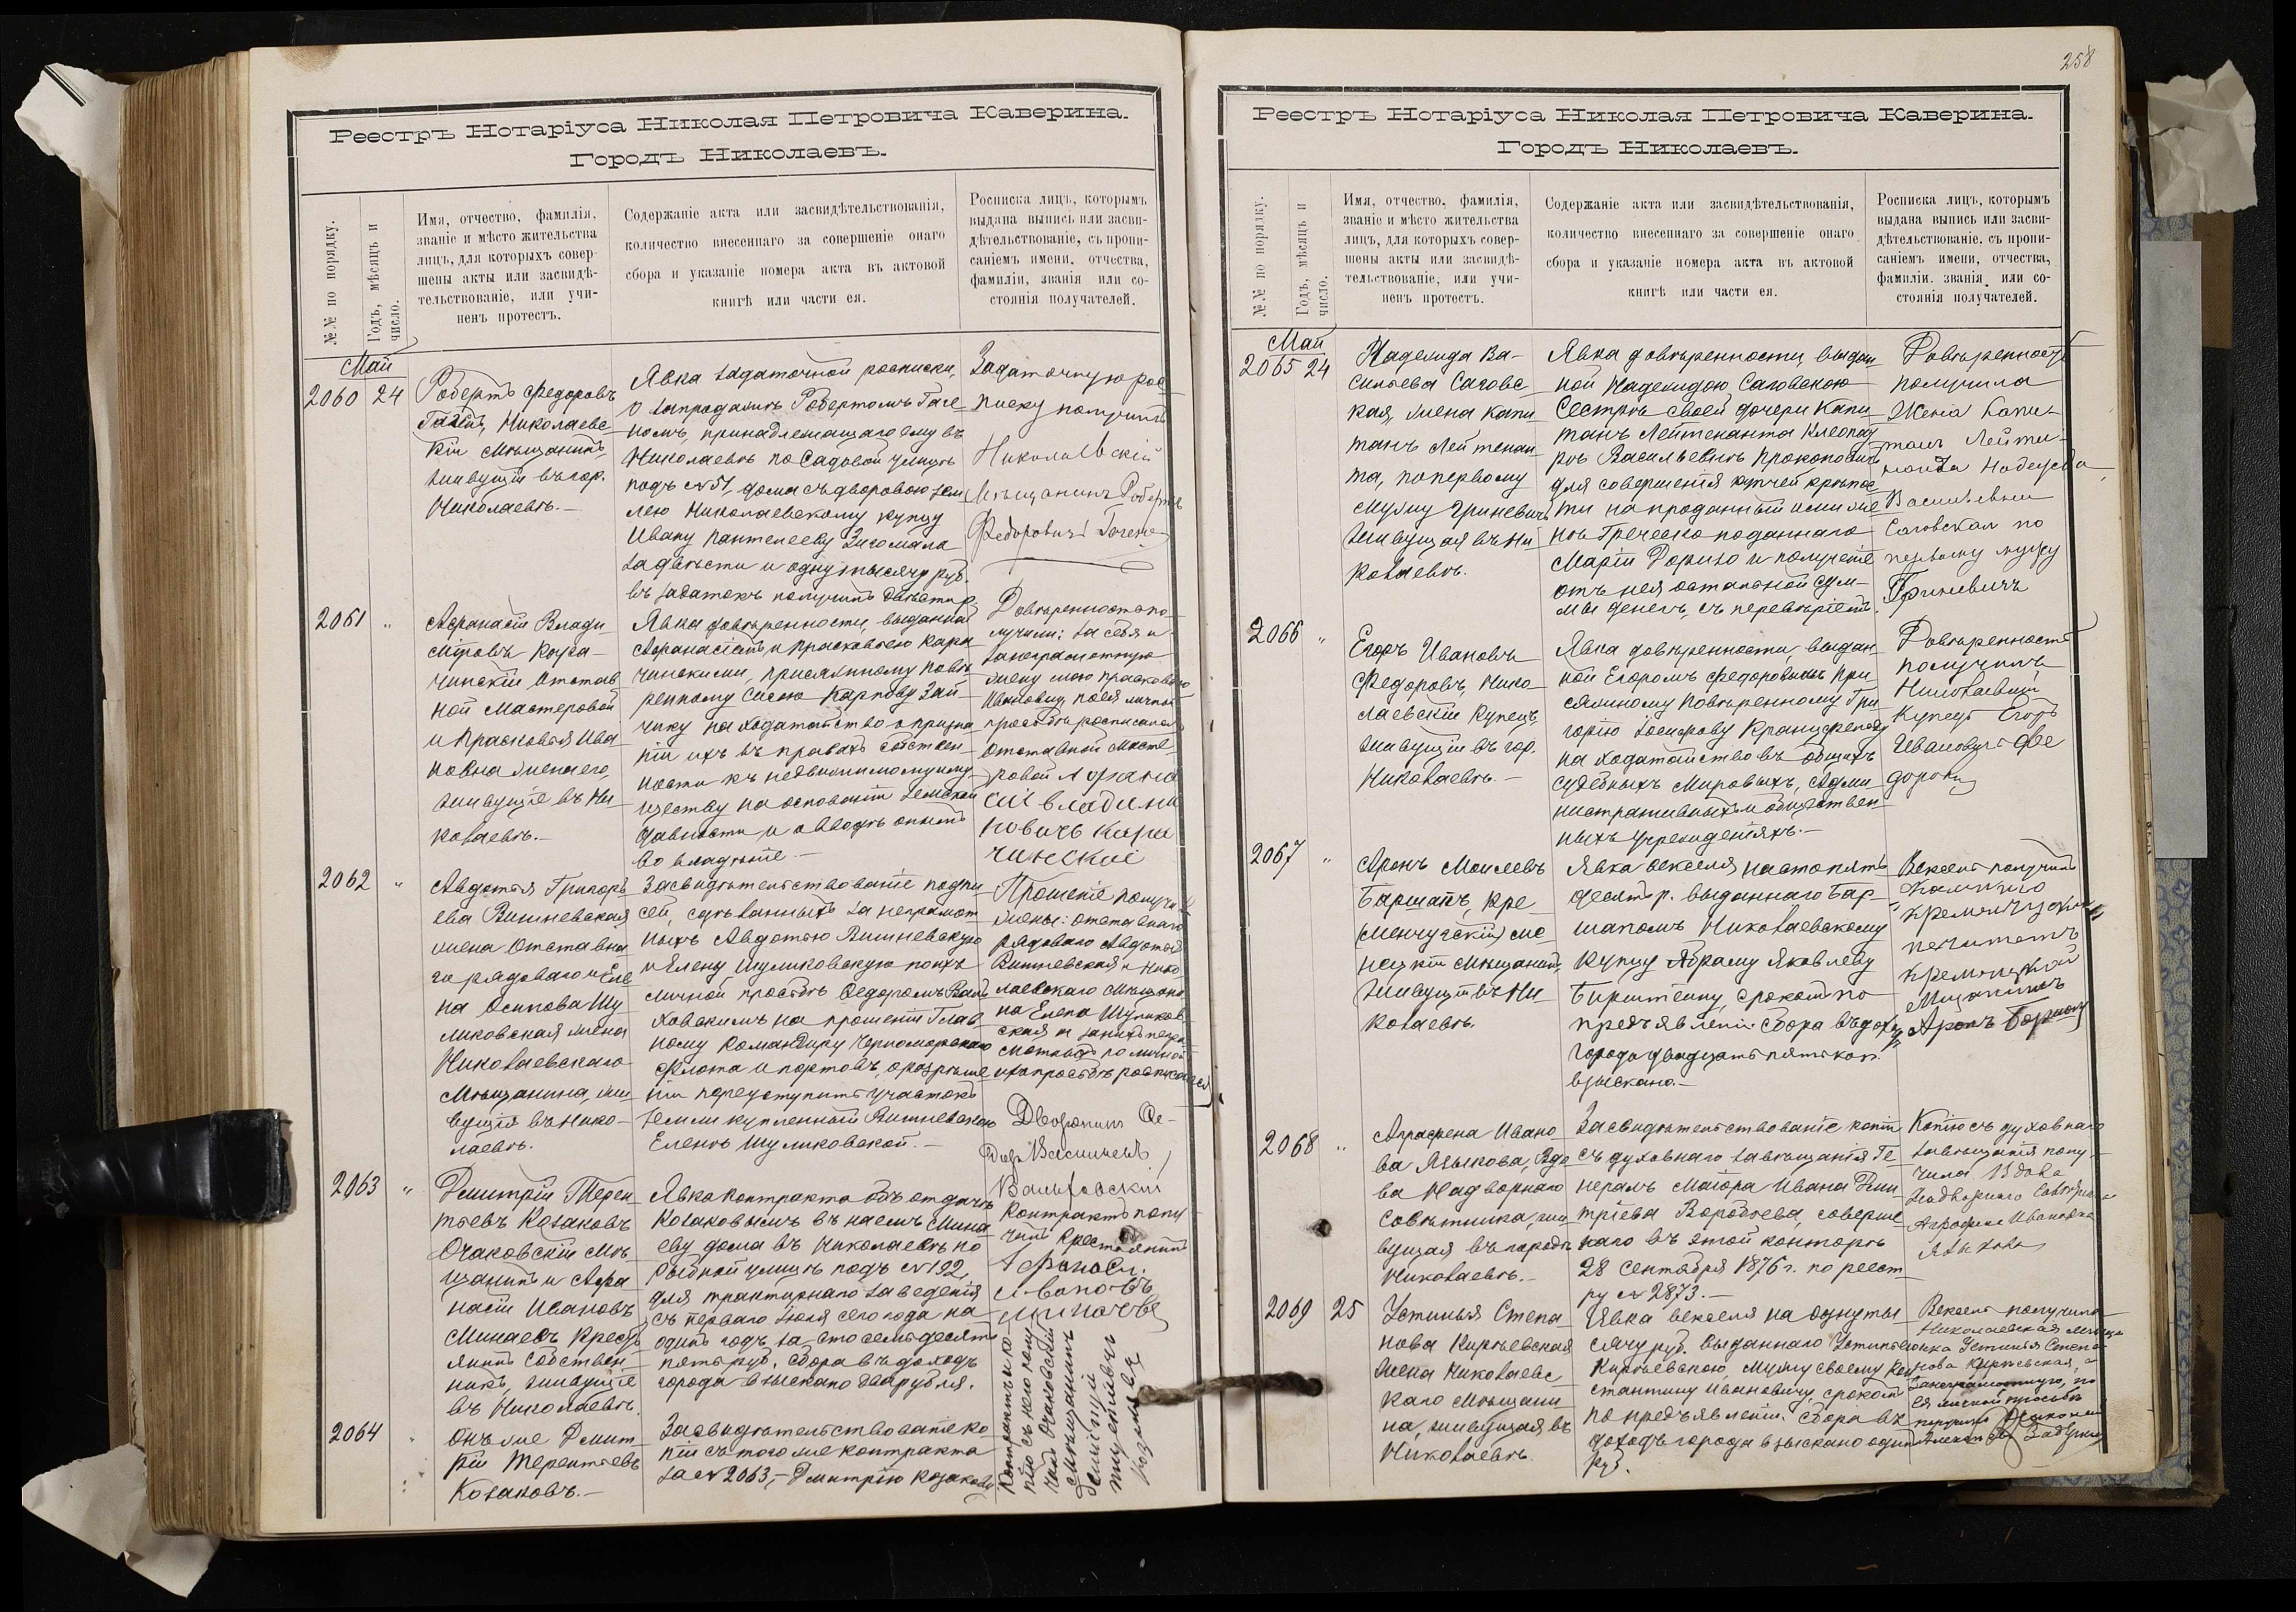 258
Реестръ Нотаріуса Николая Петровича Каверина.
Городъ Николаевъ.
№№ по порядку.
Годъ, мѣсяцъ и число.
Имя, отчество, фамилія,
званіе и мѣсто жительства
лицъ, для которыхъ совер-
шены акты или засвидѣ-
тельствованіе, или учи-
ненъ протестъ.
Содержаніе акта или засвидѣтельствованія,
количество внесеннаго за совершеніе онаго
сбора и указаніе номера акта въ актовой
книгѣ или части ея.
Росписка лицъ, которымъ
выдана выпись или засви-
дѣтельствованіе, съ пропи-
саніемъ имени, отчества,
фамиліи, званія или со-
стоянія получателей.
Май
2060 24
Робертъ Федоровъ
Николаевс
кій Мѣщанинъ,
живущій въ гор.
Николаевѣ.—
Явка задаточной росписки,
о запродажѣ Робертомъ Гаге-
номъ, принадлежащаго ему въ
Николаевѣ по Садовой улицѣ
подъ № 51, дома съ дворовою зем
лею Николаевскому купцу
Ивану Пантелееву
за двѣсти и одну тысячу руб.
въ задатокъ получилъ двѣсти р.
Задаточную рос
писку получилъ
Николаевскій
Мѣщанинъ Робертъ
Федоровичъ Гагенъ
2061 "
Афанасій Влади
міровъ
чинскій Отстав
ной Мастеровой
и Прасковья Ива
новна жена его,
живущіе въ Ни
колаевѣ.—
Явка довѣренности, выданной
Афанасіемъ и Прасковьею Кара
чинскими, присяжному повѣ
ренному Сисою Карпову Зай
чику на ходатайство о призна
ніи ихъ въ правахъ собствен
ности къ недвижимому иму
ществу на основаніи земской
давности и о вводѣ
во владѣніе.—
Довѣренность по-
лучилъ: за себя и
за неграмотную
жену мою Прасковью
Ивановну, по ея личной
просьбѣ росписался
Отставной Масте
ровой Афана
сій
2062 "
Авдотья Григорь
ева Вишневская
жена Отставна
го рядоваго и Еле
на Осипова Шу
ликовская жена
Николаевскаго
Мѣщанина, жи
вущія въ Нико-
лаевѣ.
Засвидѣтельствованіе подпи
сей, сдѣланныхъ за неграмот
ныхъ Авдотью Вишневскую
и Елену Шуликовскую по ихъ
личной просьбѣ Федоромъ Валь
ховскимъ на прошеніи Глав
ному Командиру Черноморскаго
Флота и портовъ, о разрѣше
ніи переуступить участокъ
земли купленный Вишневскою
Еленѣ Шуликовской.—
Прошеніе получи
жены: отставнаго
рядоваго Авдотья
Вишневская и Нико
лаевскаго Мѣщани
на Елена Шуликов
ская и за нихъ негра
мотныхъ по личной
ихъ просьбѣ росписался
Дворянинъ Ѳе-
Вальховскій
2063 "
Дмитрій Терен
тьевъ Козаковъ
Очаковскій Мѣ
щанинъ и Афа
насій Ивановъ
Минаевъ Кресть
янинъ собствен
никъ, живущіе
въ Николаевѣ.
Явка контракта объ отдачѣ
Козаковымъ въ наемъ Мина
еву дома въ Николаевѣ по
Рыбной улицѣ подъ № 192,
для трактирнаго заведенія
съ перваго Іюля сего года на
одинъ годъ за сто семьдесятъ
пять руб. сбора въ доходъ
города взыскано два рубля.
Контрактъ полу
чилъ Крестьянинъ
Афанаси.
Ивановъ
2064 "
Онъ же Дмит
рій Терентьевъ
Козаковъ.—
Засвидѣтельствованіе ко
піи съ того же контракта
за № 2063,— Дмитрію Козакову
Контрактъ и ко
пію съ него полу
чилъ Очаковскій
мещанинъ
Реестръ Нотаріуса Николая Петровича Каверина.
Городъ Николаевъ.
№№ по порядку.
Годъ, мѣсяцъ и число.
Имя, отчество, фамилія,
званіе и мѣсто жительства
лицъ, для которыхъ совер-
шены акты или засвидѣ-
тельствованіе, или учи-
ненъ протестъ.
Содержаніе акта или засвидѣтельствованія,
количество внесеннаго за совершеніе онаго
сбора и указаніе номера акта въ актовой
книгѣ или части ея.
Росписка лицъ, которымъ
выдана выпись или засви-
дѣтельствованіе. съ пропи-
саніемъ имени, отчества,
фамиліи. званія или со-
стоянія получателей.
Май
2065 24
Надежда Ва-
сильева Саговс
кая, жена Капи
танъ Лейтенан
та, по первому
мужу Гриневичъ
живущая въ Ни
колаевѣ.
Явка довѣренности, выдан
ной Надеждою Саговскою
Сестрѣ своей дочери Капи
танъ Лейтенанта Клеопат
рѣ Васильевнѣ Прокоповичъ
для совершенія купчей крѣпос
ти на проданный
Греческо подданнаго
Маріи и полученіе
отъ нея остальной сум-
мы денегъ, съ перевѣріемъ.
Довѣренность
получила
Жена Капи-
танъ Лейте-
нанта Надежда
Васильевна
Саговская по
первому мужу
Гриневичъ
2066 "
Егоръ Ивановъ
Федоровъ, Нико
лаевскій Купецъ,
живущій въ гор.
Николаевѣ.—
Явка довѣренности, выдан
ной Егоромъ Федоровымъ при
сяжному повѣренному Гри
горію Іосифову
на ходатайство въ общихъ
судебныхъ Мировыхъ, Адми
нистративныхъ и обществен
ныхъ учрежденіяхъ.—
Довѣренность
получилъ
Николаевскій
Купецъ Егоръ
Ивановичъ Фе
доровъ
2067 "
Аронъ Моисеевъ
Баршапъ, Кре
менчугскій Мѣщанинъ,
живущій въ Ни
колаевѣ.
Явка векселя на сто пять
десятъ р. выданнаго Бар-
шапомъ Николаевскому
Купцу Абраму Яковлеву
Бирштейну, срокомъ по
предъявленіи. Сбора въ доходъ
города двадцать пять коп.
взыскано.—
Вексель получилъ
Аронъ
2068 "
Аграфена Ивано
ва Языкова, Вдо
ва Надворнаго
Совѣтника, жи
вущая въ городѣ
Николаевѣ.—
Засвидѣтельствованіе копіи
съ духовнаго завѣщанія Ге
нералъ Маіора Ивана Дми
тріева Воробьева, соверше
наго въ этой конторѣ
28 Сентября 1876 г. по реест
ру № 2873.—
Копію съ духовнаго
завѣщанія полу-
чила Вдова
Надворнаго Совѣтника
Аграфена Ивановна
Языкова
2069 25
Устинья Степа
нова Кирьевская
жена Николаевс
каго Мѣщани
на, живущая въ
Николаевѣ.
Явка векселя на одну ты
сячу руб. выданнаго Устиньею
Кирьевскою, мужу своему Кон
стантину Ивановичу, срокомъ
по предъявленіи. Сбора въ
доходъ города взыскано одинъ
руб.
Вексель получила
Николаевская Мѣща
нка Устинья Степа
нова Кирьевская, а
за неграмотную, по
ея личной просьбѣ